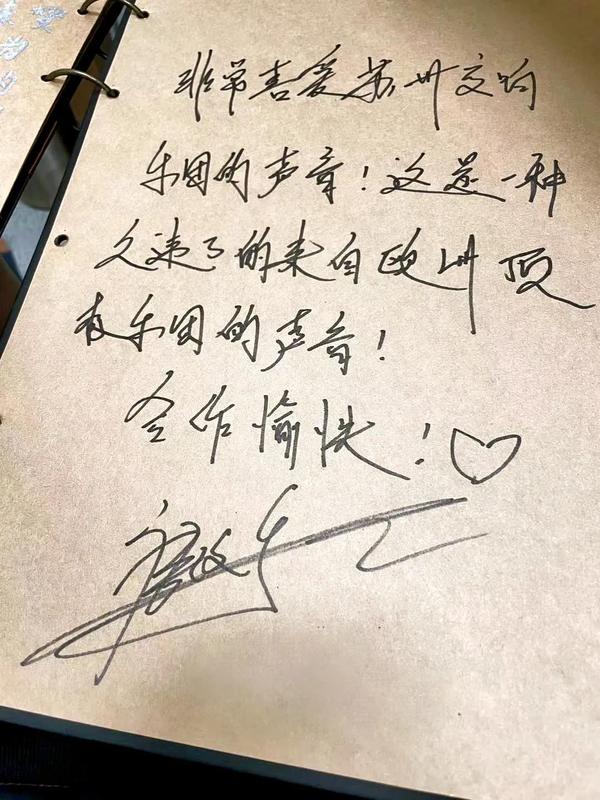 非常喜爱苏州交响
乐团的声音！这是一种
久违了的来自欧洲顶
级乐团的声音！
合作愉快！